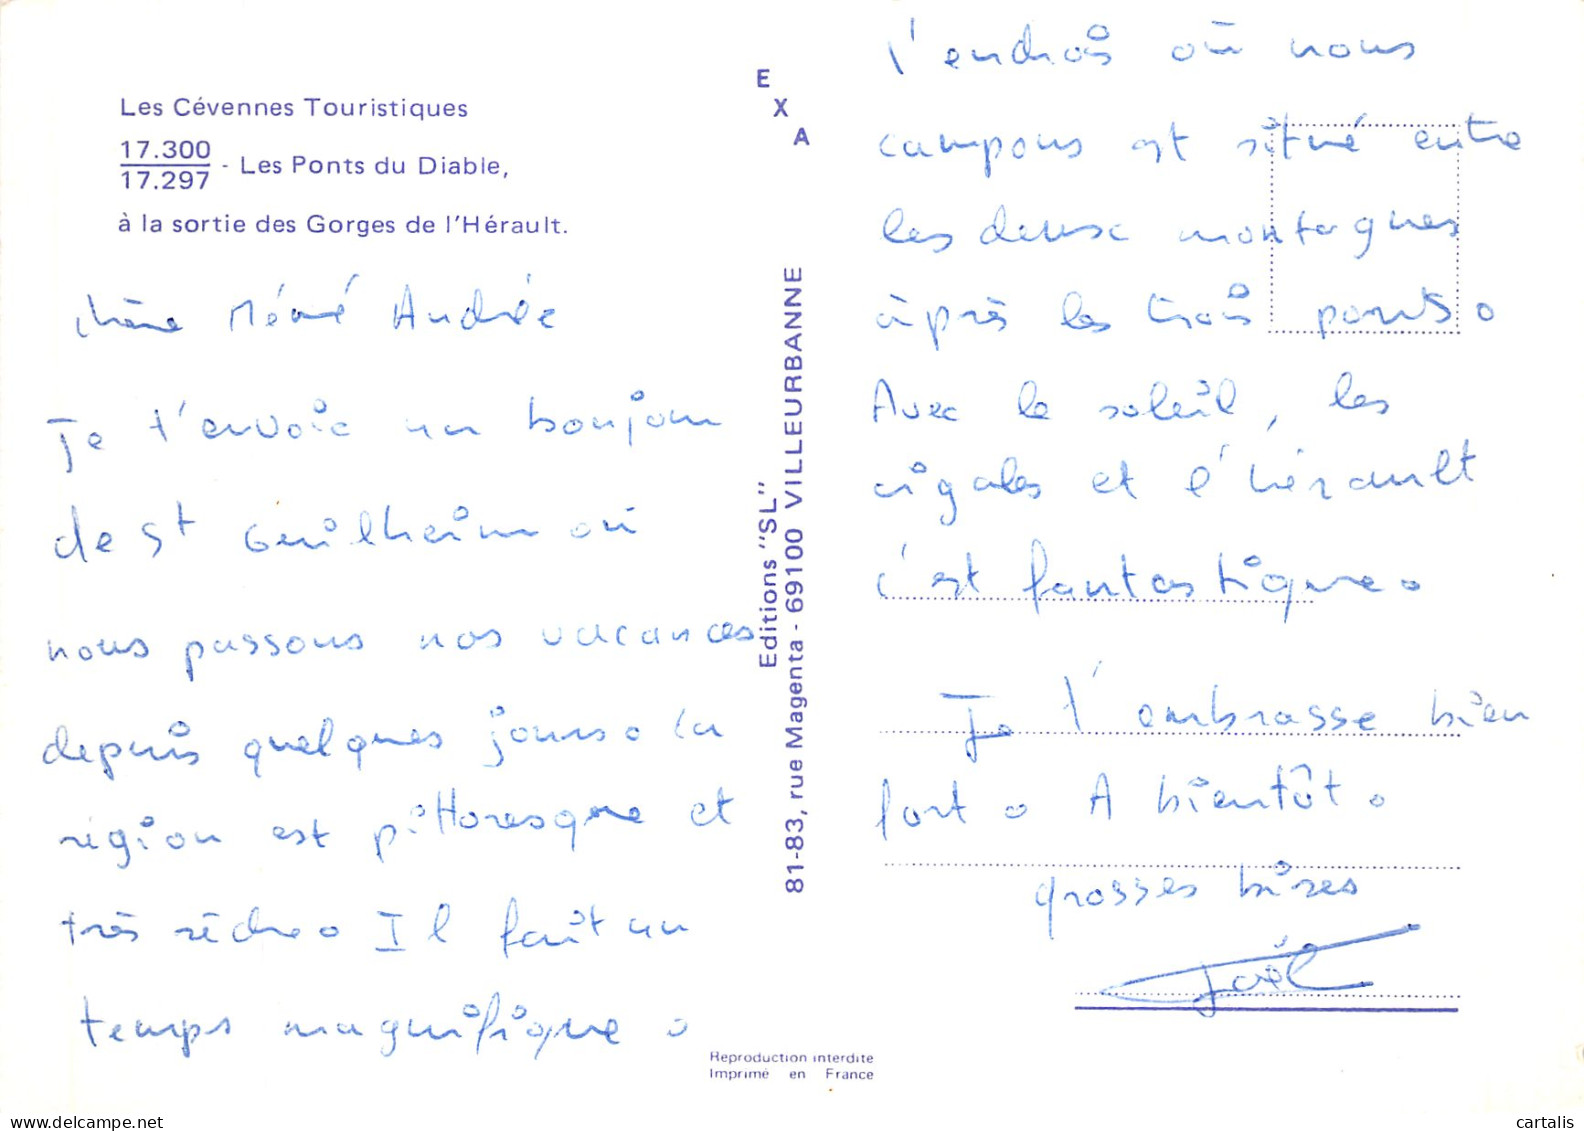 Les Cévennes Touristiques
17.300
17.297 - Les Ponts du Diable,
à la sortie des Gorges de l'Hérault.
chère Mémé Andrée
Je t'envoie un bonjour
de St Guilheim où
nous passons nos vacances
depuis quelques jours. la
région est pittoresque et
très sèche. Il fait un
temps magnifique.
E
X
A
Editions "SL"
81-83, rue Magenta - 69100 VILLEURBANNE
l'endroi où nous
campons est situé entre
les deux montagnes
après les trois ponts.
Avec le soleil, les
cigales et l'hérault
c'est fantastique.
Je t'embrasse bien
fort. A bientôt.
grosses bises
Joël
Reproduction interdite
Imprimé en France
cartalis